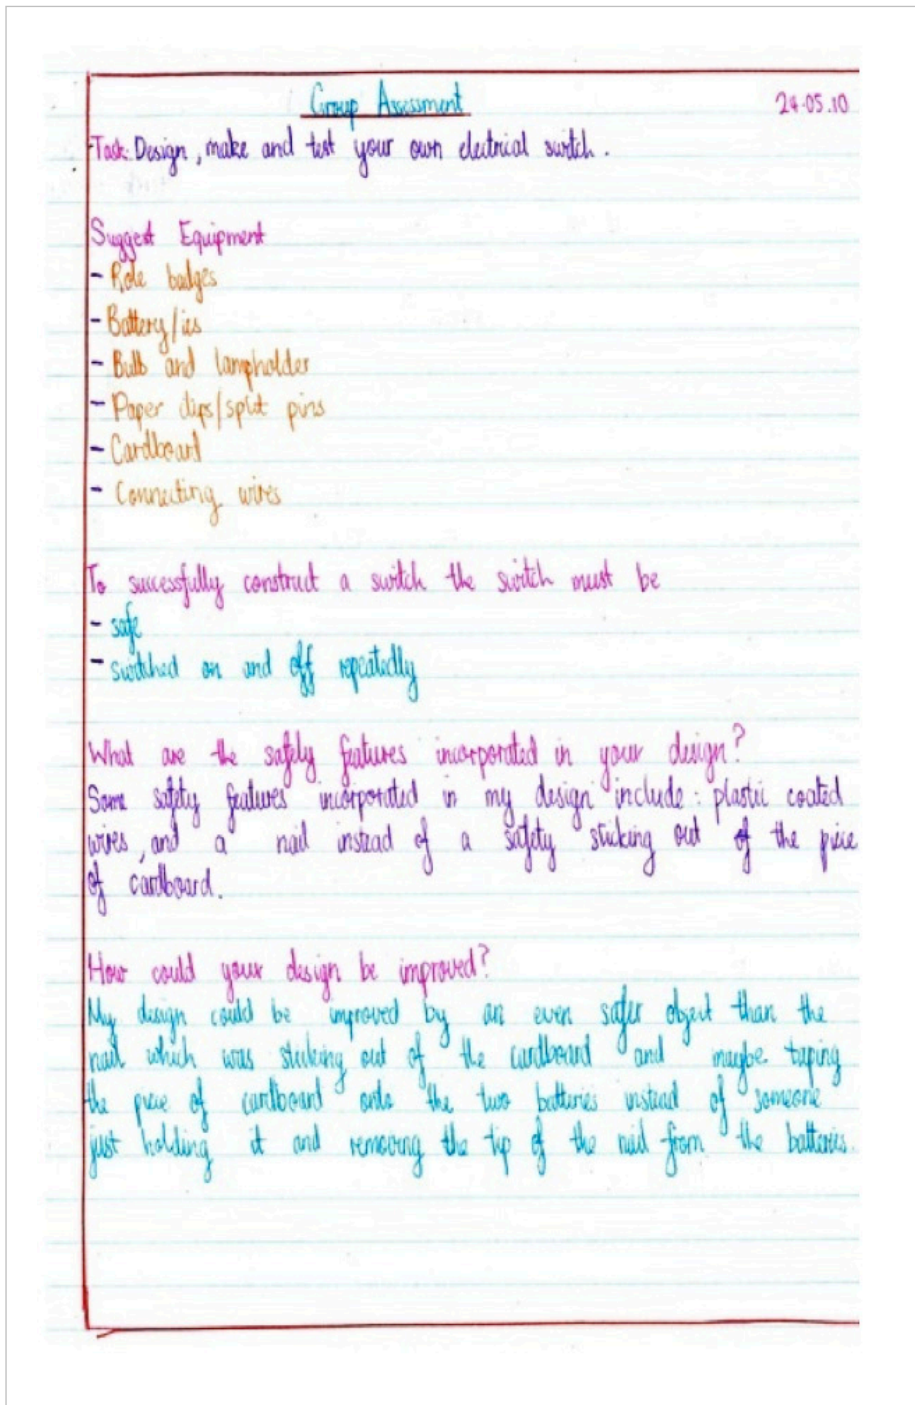 Group Assessment 24.05.10
Task: Design, make and test your own electrical switch.
Suggest Equipment
- Role badges
- Battery/ies
- Bulb and lampholder
- Paper clips/split pins
- Cardboard
- Connecting wires
To successfully construct a switch the switch must be
- safe
- switched on and off repeatedly
What are the safety features incorporated in your design?
Some safety features incorporated in my design include: plastic coated
wires, and a nail instead of a safety sticking out of the piece
of cardboard.
How could your design be improved?
My design could be improved by an even safer object than the
nail which was sticking out of the cardboard and maybe taping
the piece of cardboard onto the two batteries instead of someone
just holding it and removing the tip of the nail from the batteries.